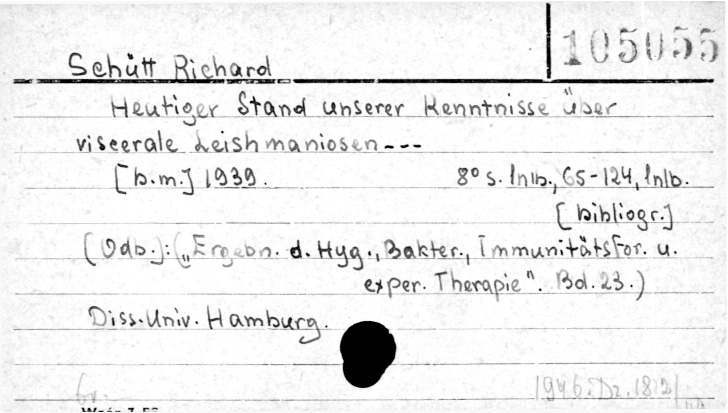 105055
Schütt Richard
Heutiger Stand unserer Kenntnisse über
viscerale Leishmaniosen ---
[b.m.] 1939. 8° s. lnlb., 65-124, lnlb.
[bibliogr.]
[Odb.]: („Ergebn. d. Hyg., Bakter., Immunitätsfor. u.
exper. Therapie". Bd. 23.)
Diss. Univ. Hamburg.
1946. Dz. 1821